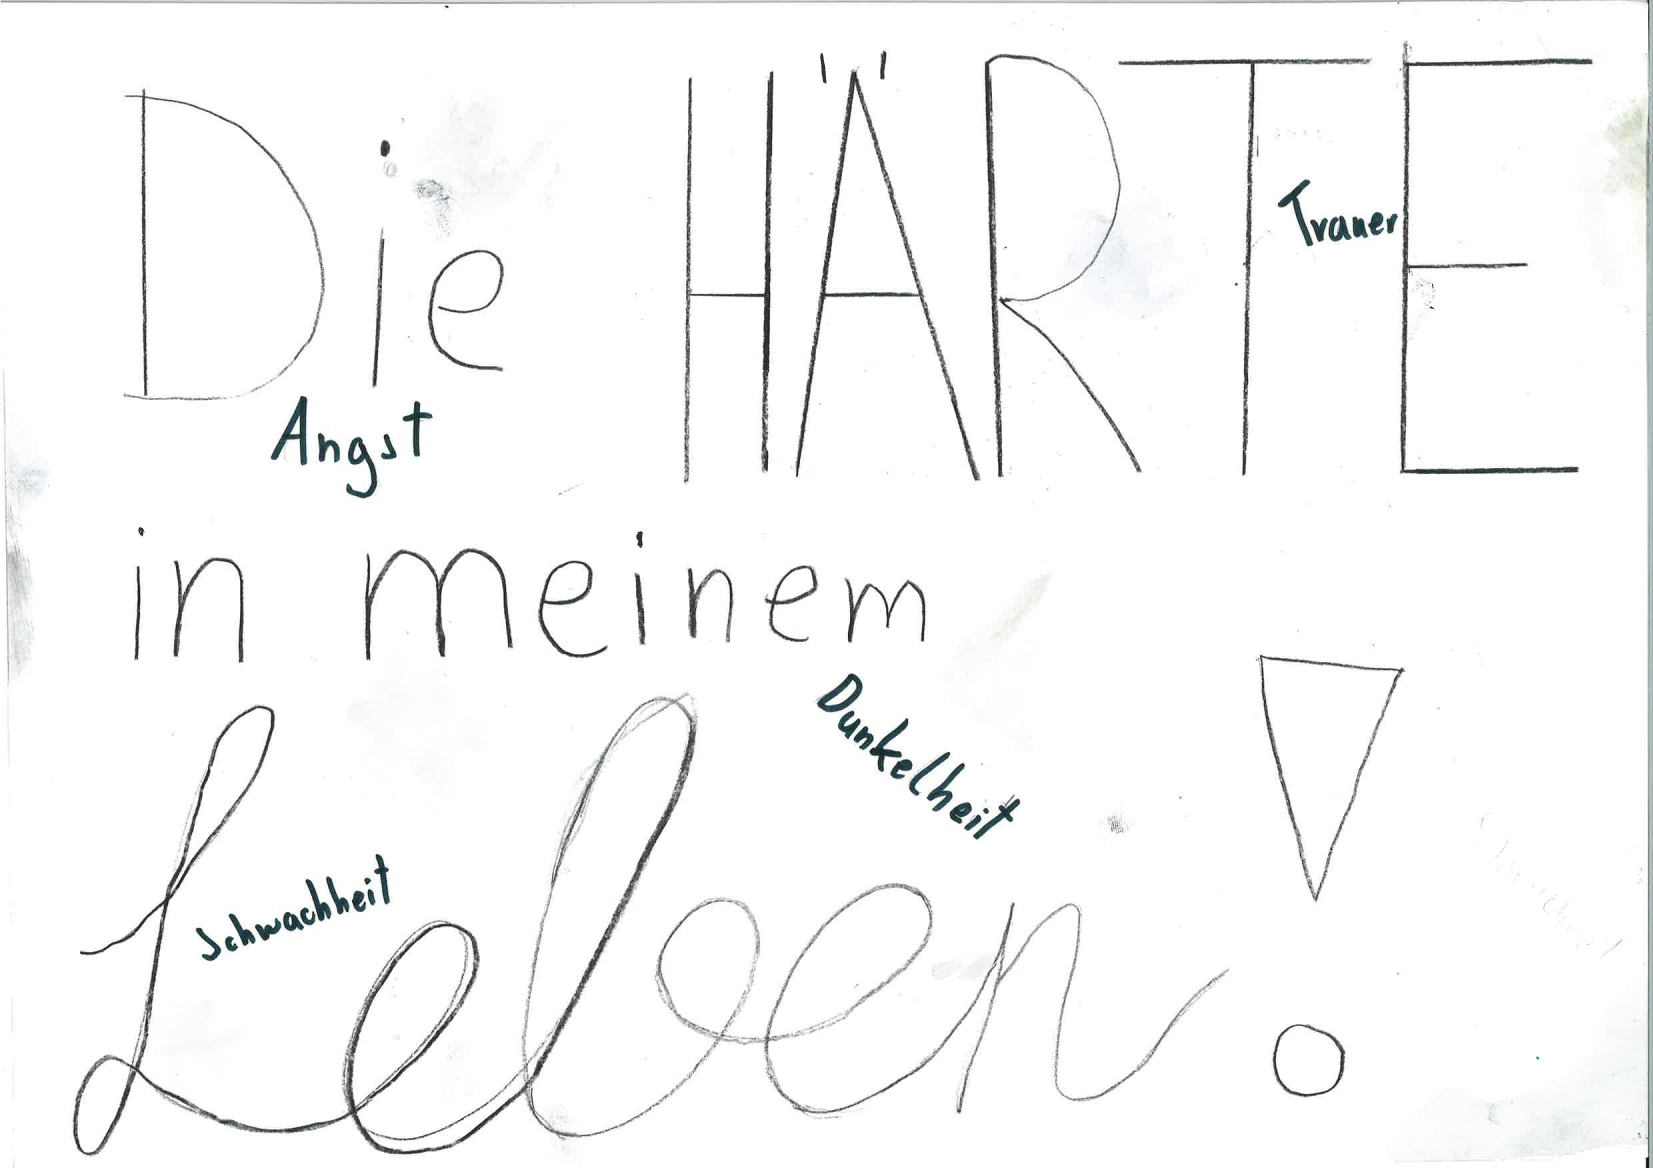 Die HÄRTE
Trauer
Angst
in meinem
Dunkelheit
Leben!
Schwachheit